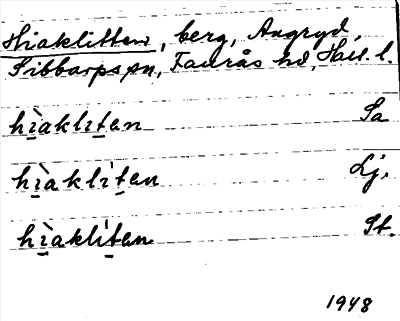 Hiaklitten, berg, Angryd,
Sibbarps sn, Faurås hd, Hall. l.
hìaklıten Sa
hìaklıten Lj.
hìakliten St.
1948